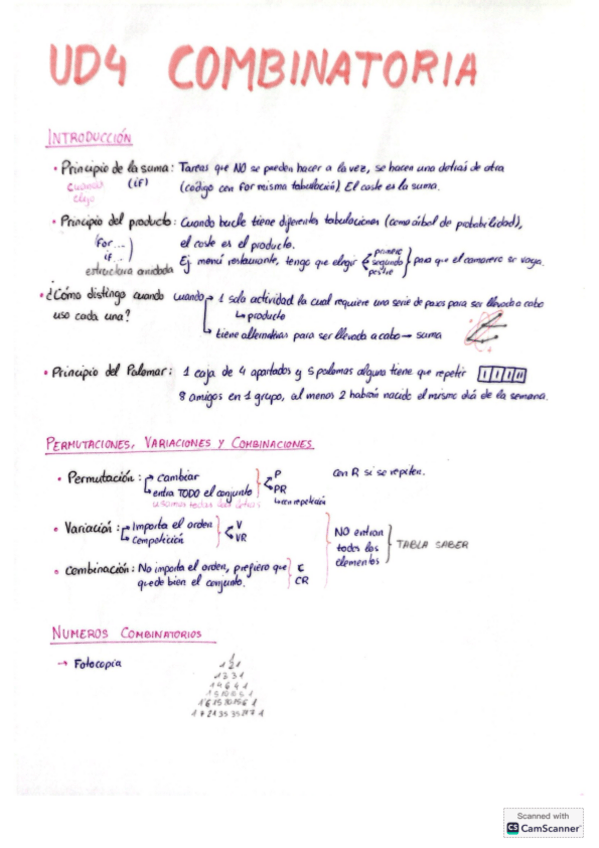 UD4 COMBINATORIA
INTRODUCCIÓN
• Principio de la suma: Tareas que NO se pueden hacer a la vez, se hacen una detrás de otra
cuando elijo (if) (código con for misma tabulación) El coste es la suma.
• Principio del producto: Cuando bucle tiene diferentes tabulaciones (como árbol de probabilidad),
for... el coste es el producto.
if... Ej menú restaurante, tengo que elegir primero segundo postre para que el camarero se vaya.
estructura anidada
• ¿Cómo distingo cuando uso cada una? cuando → 1 sola actividad la cual requiere una serie de pasos para ser llevada a cabo
↳ producto
↳ tiene alternativas para ser llevada a cabo → suma
• Principio del Palomar: 1 caja de 4 apartados y 5 palomas alguna tiene que repetir
8 amigos en 1 grupo, al menos 2 habrán nacido el mismo día de la semana.
PERMUTACIONES, VARIACIONES Y COMBINACIONES
• Permutación: → cambiar P con R si se repiten.
↳ entra TODO el conjunto PR
usamos todas las ↳ con repetición
• Variación: → Importa el orden V
↳ Competición VR
NO entran todos los elementos TABLA SABER
• Combinación: No importa el orden, prefiero que C
quede bien el conjunto. CR
NUMEROS COMBINATORIOS
→ Fotocopia
1
1 2 1
1 3 3 1
1 4 6 4 1
1 5 10 10 5 1
1 6 15 20 15 6 1
1 7 21 35 35 21 7 1
Scanned with
CS CamScanner